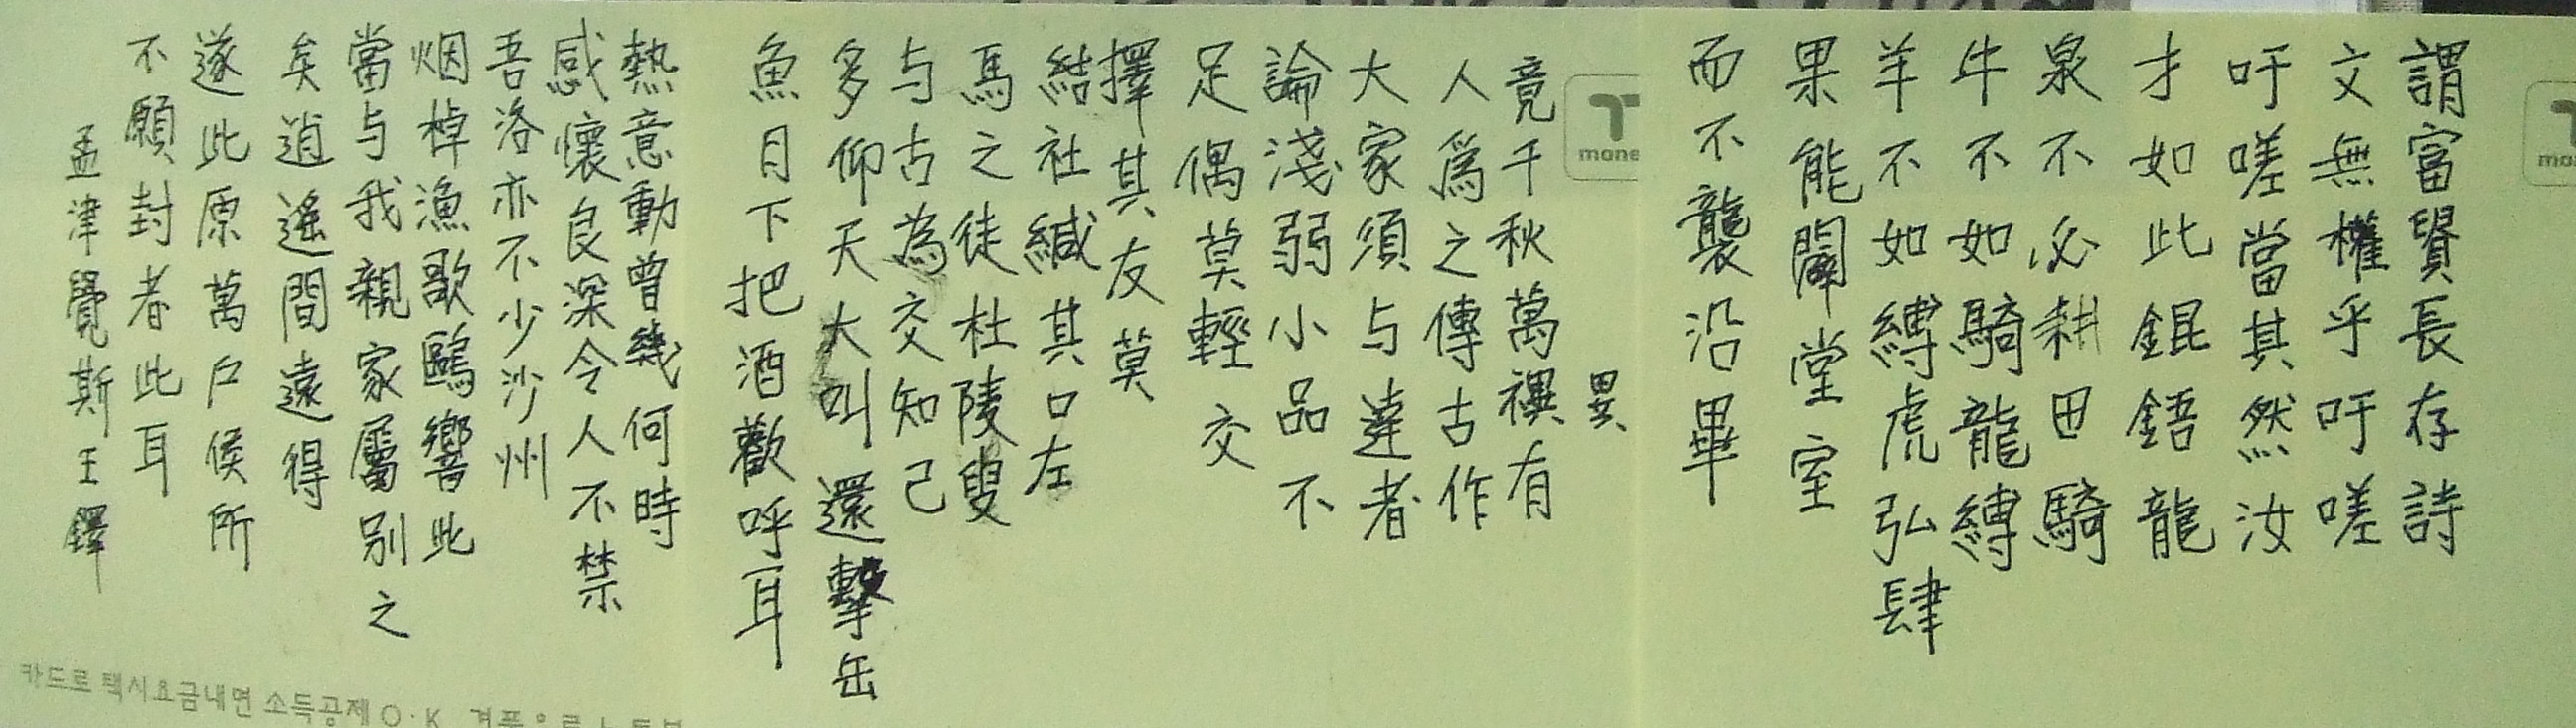 謂富贒長存詩
文無權乎吁嗟
吁嗟當其然汝
才如此錕鋙龍
泉不必耕田騎
牛不如騎龍縛
羊不如縛虎弘肆
果能闡堂室
而不襲沿畢
異
竟千秋萬禩有
人爲之傳古作
大家須与達者
論淺弱小品不
足偶莫輕交
擇其友莫
結社緘其口左
馬之徒杜陵叟
与古為交知己
多仰天大叫還擊缶
魚目下把酒歡呼耳
熱意動曾幾何時
感懷良深令人不禁
吾洛亦不少沙州
烟棹漁歌鷗響此
當与我親家屬別之
矣逍遙間遠得
遂此原萬戶侯所
不願封者此耳
孟津覺斯王鐸
mone
카드로 택시요금내면 소득공제 O·K